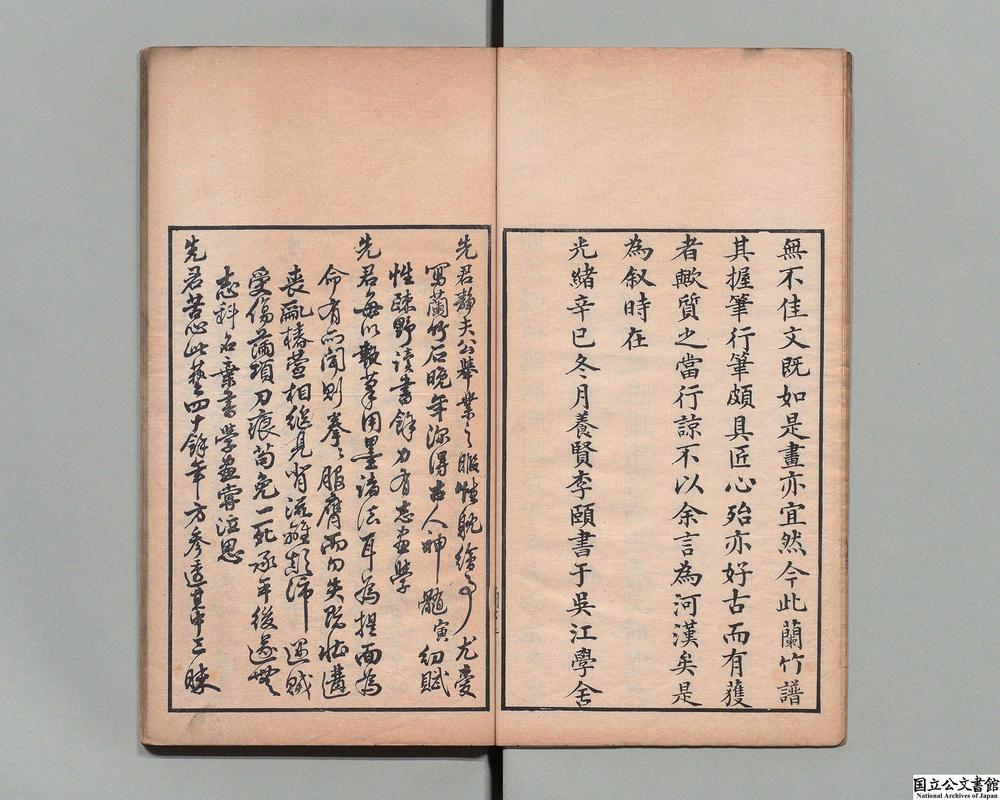 無不佳文既如是畫亦宜然今此蘭竹譜
其握筆行筆頗具匠心殆亦好古而有獲
者歟質之當行諒不以余言為河漢矣是
為叙時在
光緒辛巳冬月養賢李頤書于吳江學舍
先君靜夫公舉業之暇性耽繪事尤愛
寫蘭竹石晚年深得古人神髓寅幼賦
性疎野讀書餘力有志畫學
先君每以教筆用墨諸法耳為提面為
命有所聞則拳拳服膺而勿失既壯遘
喪亂椿萱相繼見背流離顛沛遇賊
受傷項刀痕苟免一死承平後遂無
志科名棄書學畫霑泥思
先君苦心此藝四十餘年方參透其中三昧
国立公文書館
National Archives of Japan